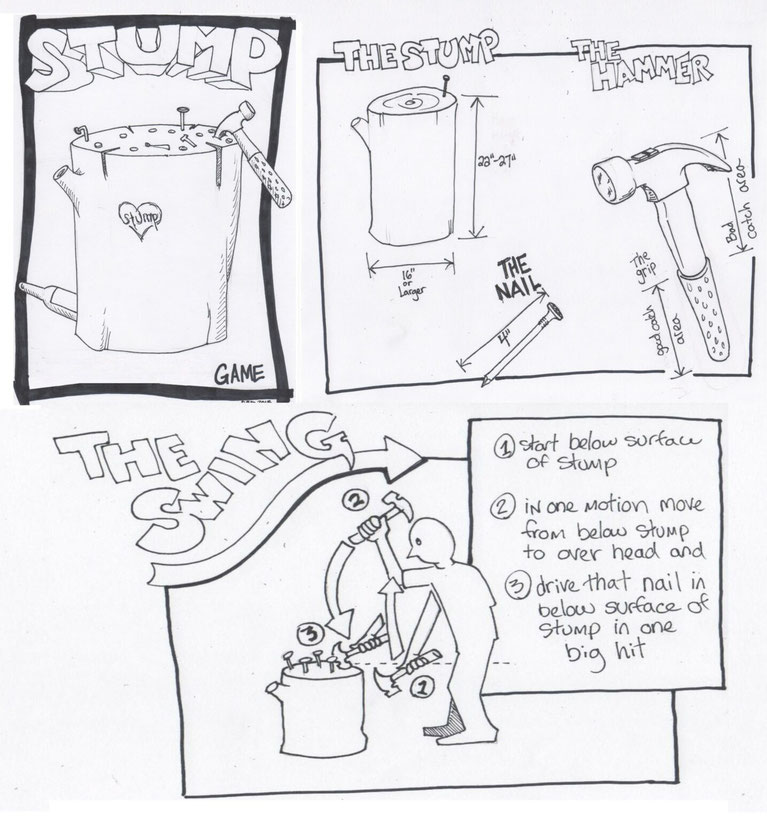 STUMP
Stump
GAME
THE STUMP
22"-27"
16"
or
Larger
THE
NAIL
4"
THE
HAMMER
Bad
catch area
The
grip
good catch
area
THE
SWING
① start below surface
of stump
② in one motion move
from below stump
to over head and
③ drive that nail in
below surface of
stump in one
big hit
②
③
①